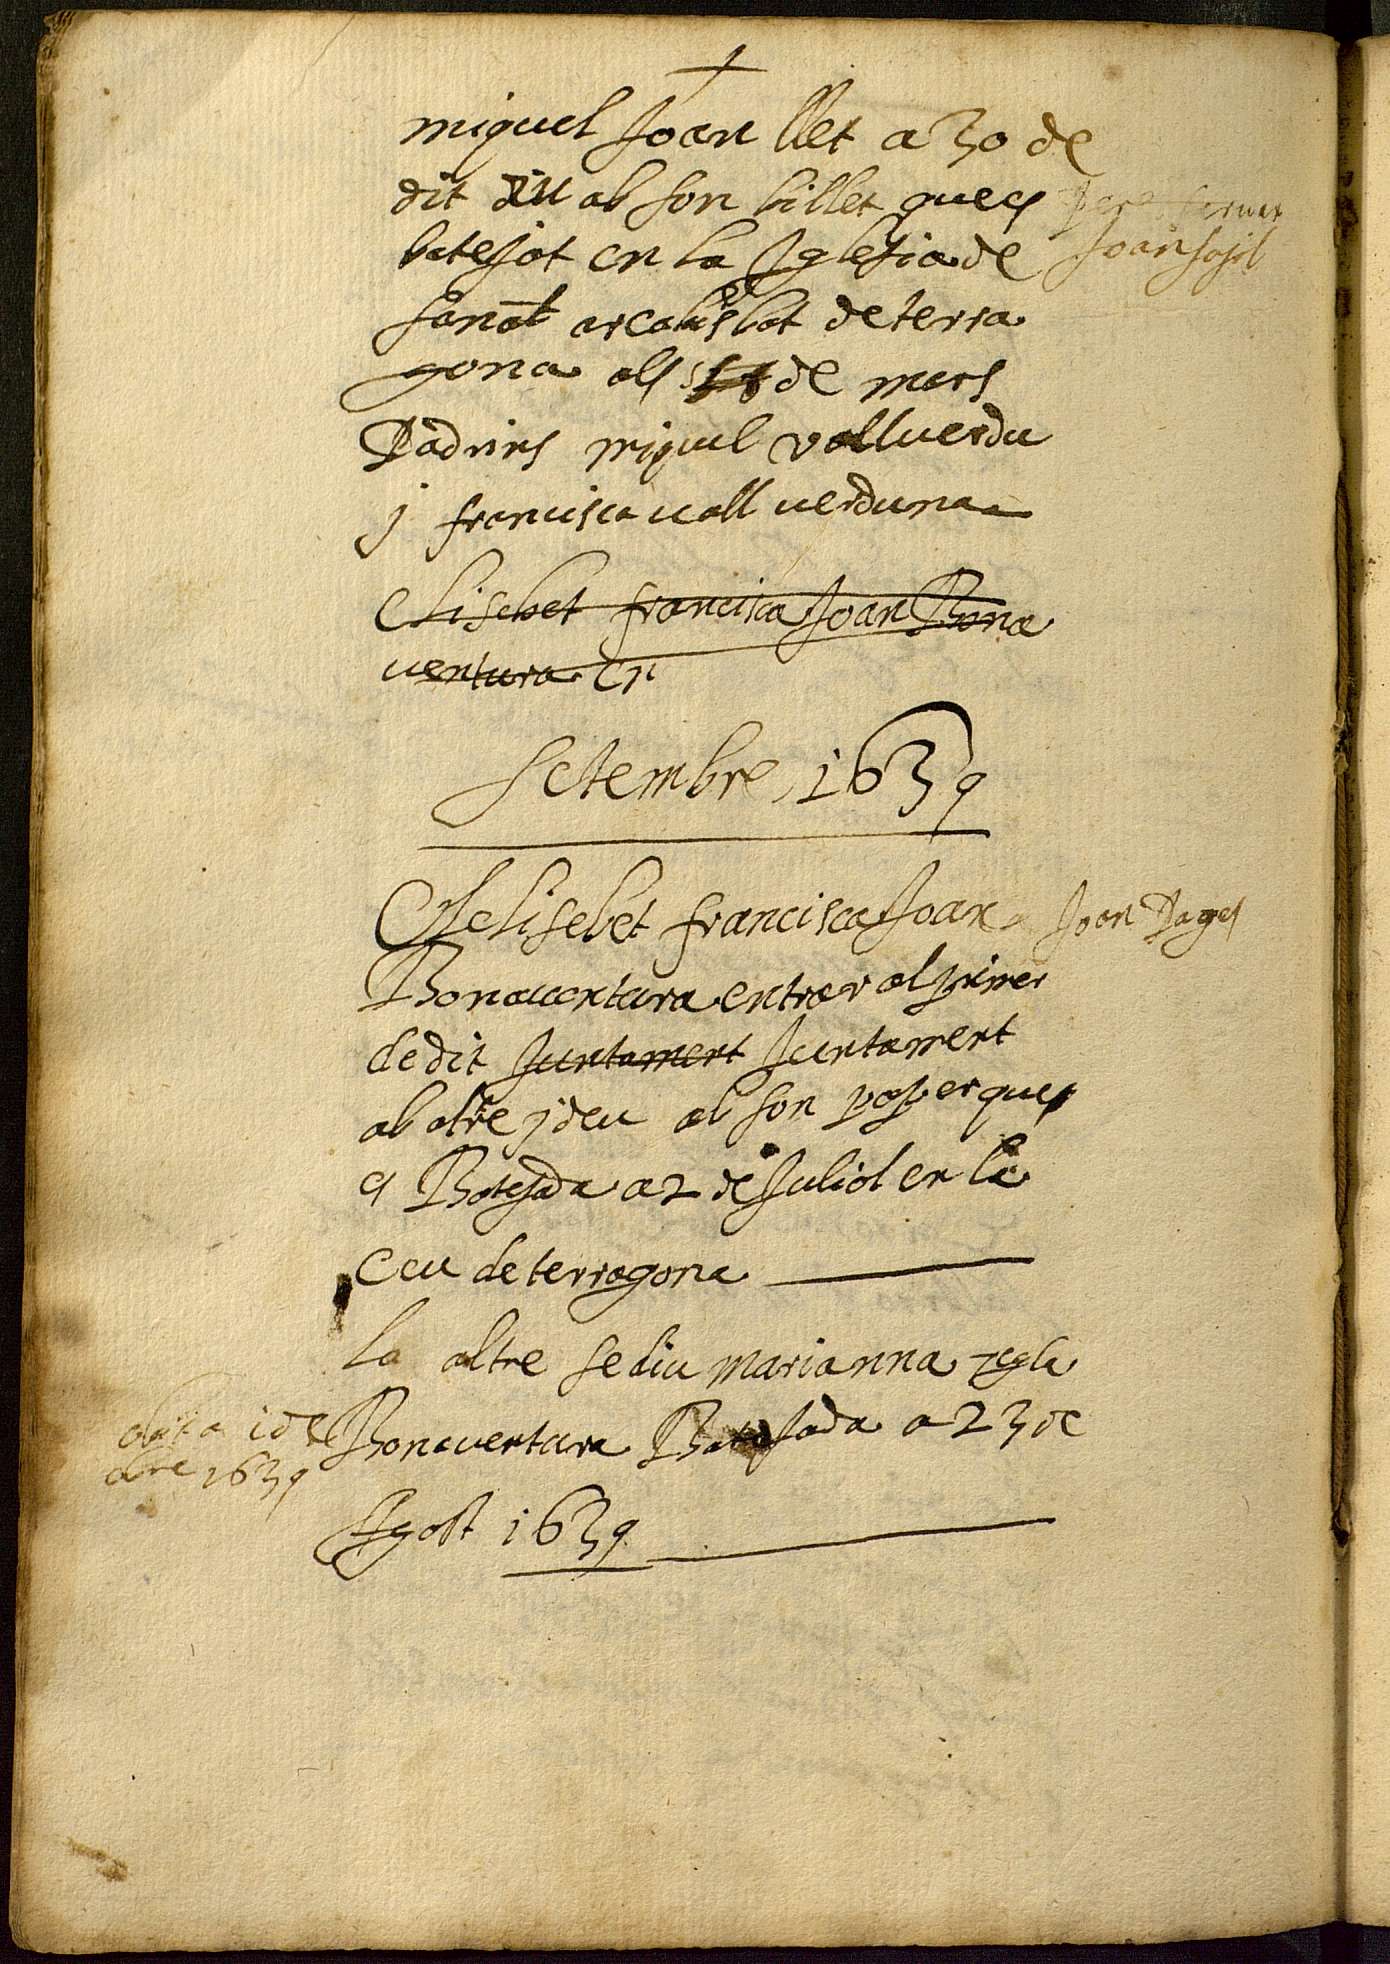 miguel Joan llet a 30 de
dit diu ab son billet que es
batejat en la Iglesia de
sanct arcabisbat de terra
gona als de mars
Padrins miguel vallverdu
j francisca vall verduna
Elisebet francisca Joan Bona
ventura en
Setembre 1639
Helisebet francisca Joan
Bonaventura entrar al primer
de dit Juntament Juntament
ab altre j deu ab son paper ques
es Batejada a 2 de Juliol en la
ceu de terragona
la altre se diu marianna tegla
Bonaventura Batejada a 23 de
Agost 1639
Joan
Joan Pages
1 de
1639